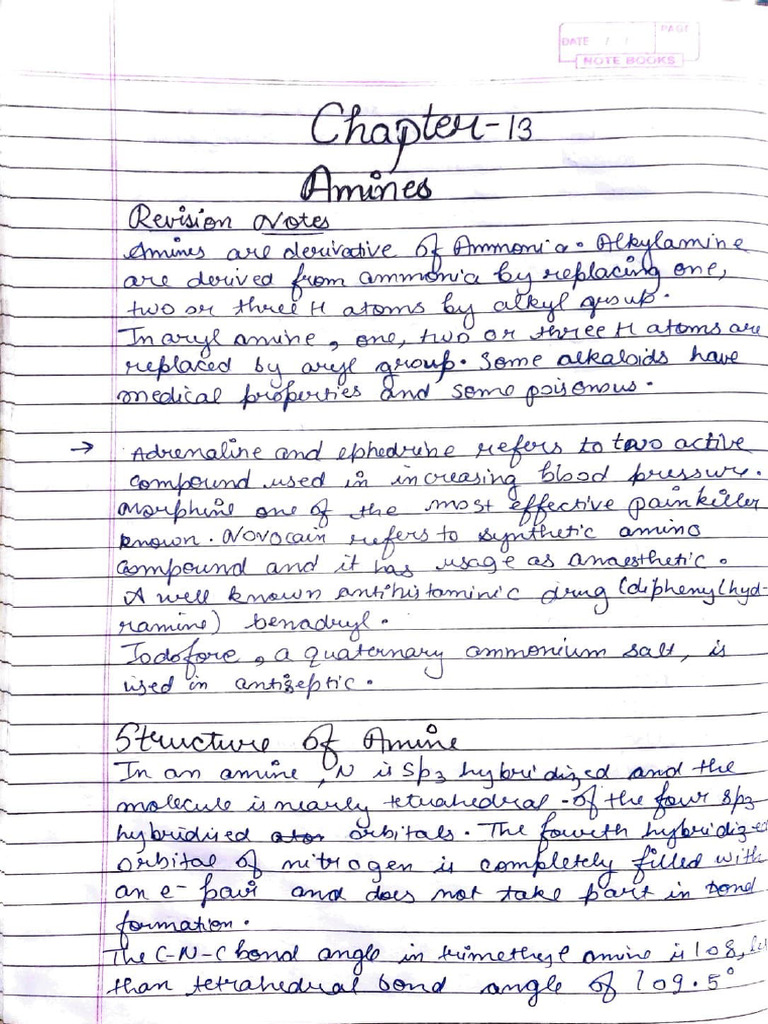 DATE / /
PAGE
NOTE BOOKS
Chapter-13
Amines
Revision Notes
Amines are derivative of Ammonia. Alkylamine
are derived from ammonia by replacing one,
two or three H atoms by alkyl group.
In aryl amine, one, two or three H atoms are
replaced by aryl group. Some alkaloids have
medical properties and some poisonous.
→ Adrenaline and ephedrine refers to two active
compound used in increasing blood pressure.
Morphine one of the most effective painkiller
known. Novocain refers to synthetic amino
compound and it has usage as anaesthetic.
A well known antihistaminic drug (diphenylhyd-
ramine) benadryl.
Iodofore, a quaternary ammonium salt, is
used in antiseptic.
Structure of Amine
In an amine, N is Sp3 hybridized and the
molecule is nearly tetrahedral - of the four sp3
hybridised orbitals. The fourth hybridized
orbital of nitrogen is completely filled with
an e- pair and does not take part in bond
formation.
The C-N-C bond angle in trimethyl amine is 108,
than tetrahedral bond angle of 109.5°